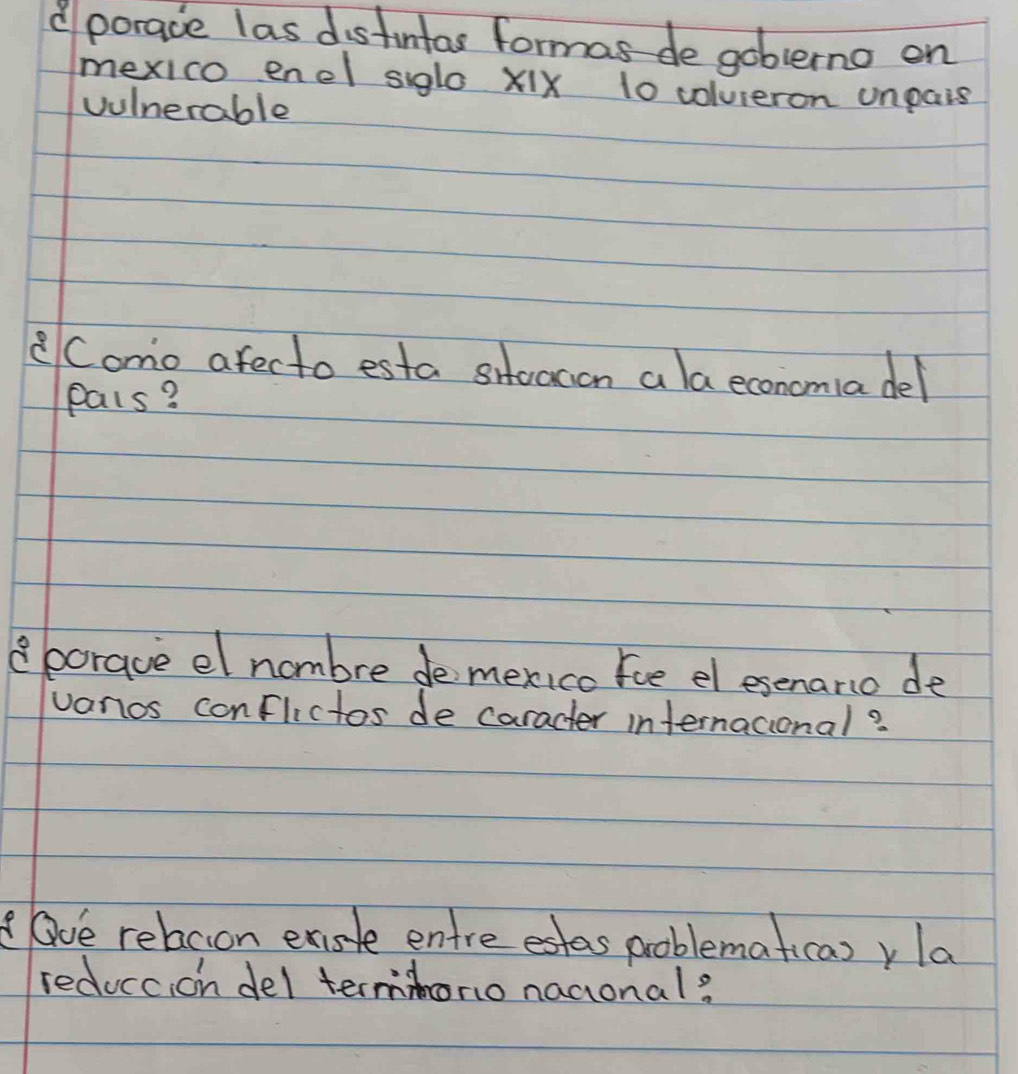 ¿porqùe las distintas formas de gobierno en
mexico en el siglo XIX lo volvieron un pais
vulnerable
¿Como afecto esta situacion a la economia del
pais?
¿porque el nombre de mexico fue el esenario de
varios conflictos de caracter internacional?
¿Qué relacion existe entre estas problematicas y la
reducción del territorio nacional?